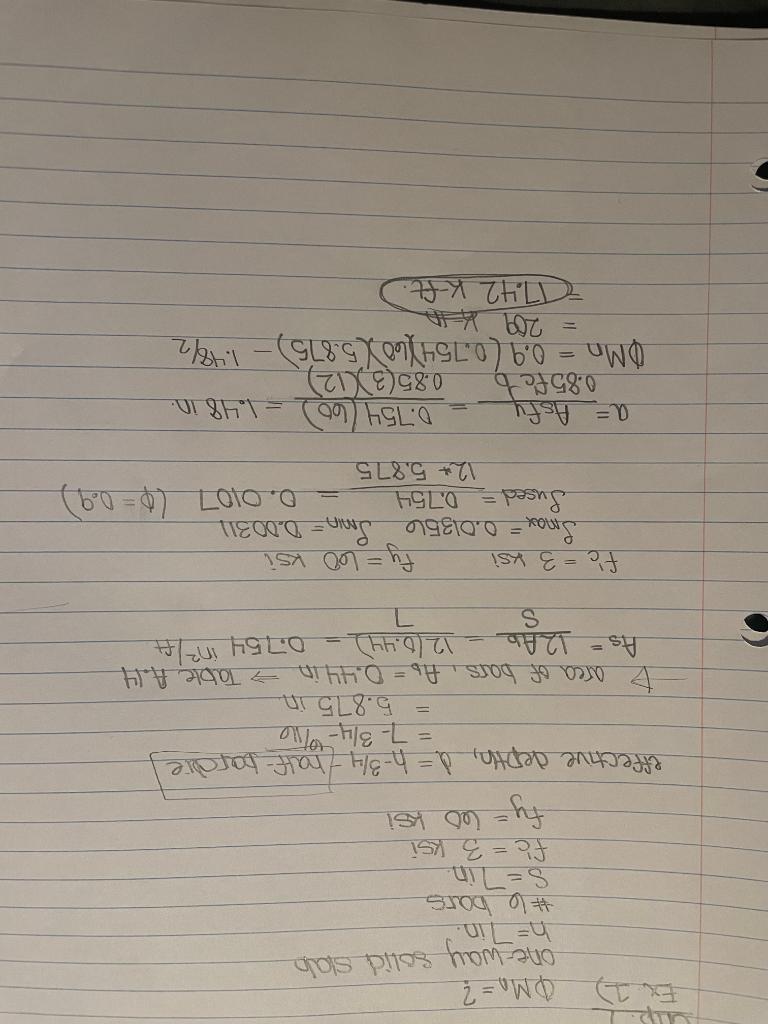 Chp. 7
Ex. 1) ØMn = ?
one-way solid slab
h = 7 in.
#6 bars
S = 7 in.
f'c = 3 ksi
fy = 60 ksi
effective depth, d = h - 3/4 - half-bar dia
= 7 - 3/4 - 6/16
= 5.875 in.
▷ area of bars, Ab = 0.44 in → Table A.14
As = 12Ab/S = 12(0.44)/7 = 0.754 in²/ft
f'c = 3 ksi fy = 60 ksi
ρmax = 0.01356 ρmin = 0.00311
ρused = 0.754/12 * 5.875 = 0.0107 (Ø = 0.9)
a = Asfy/0.85f'cb = 0.754(60)/0.85(3)(12) = 1.48 in.
ØMn = 0.9(0.754)(60)(5.875) - 1.48/2
= 209 k-in
= 17.42 k-ft.